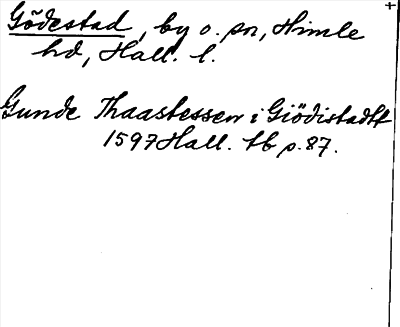 Gödestad, by o. sn, Himle
hd, Hall. l.
Gunde Thaastessen i Giödistadtt
1597 Hall. tb p. 87.